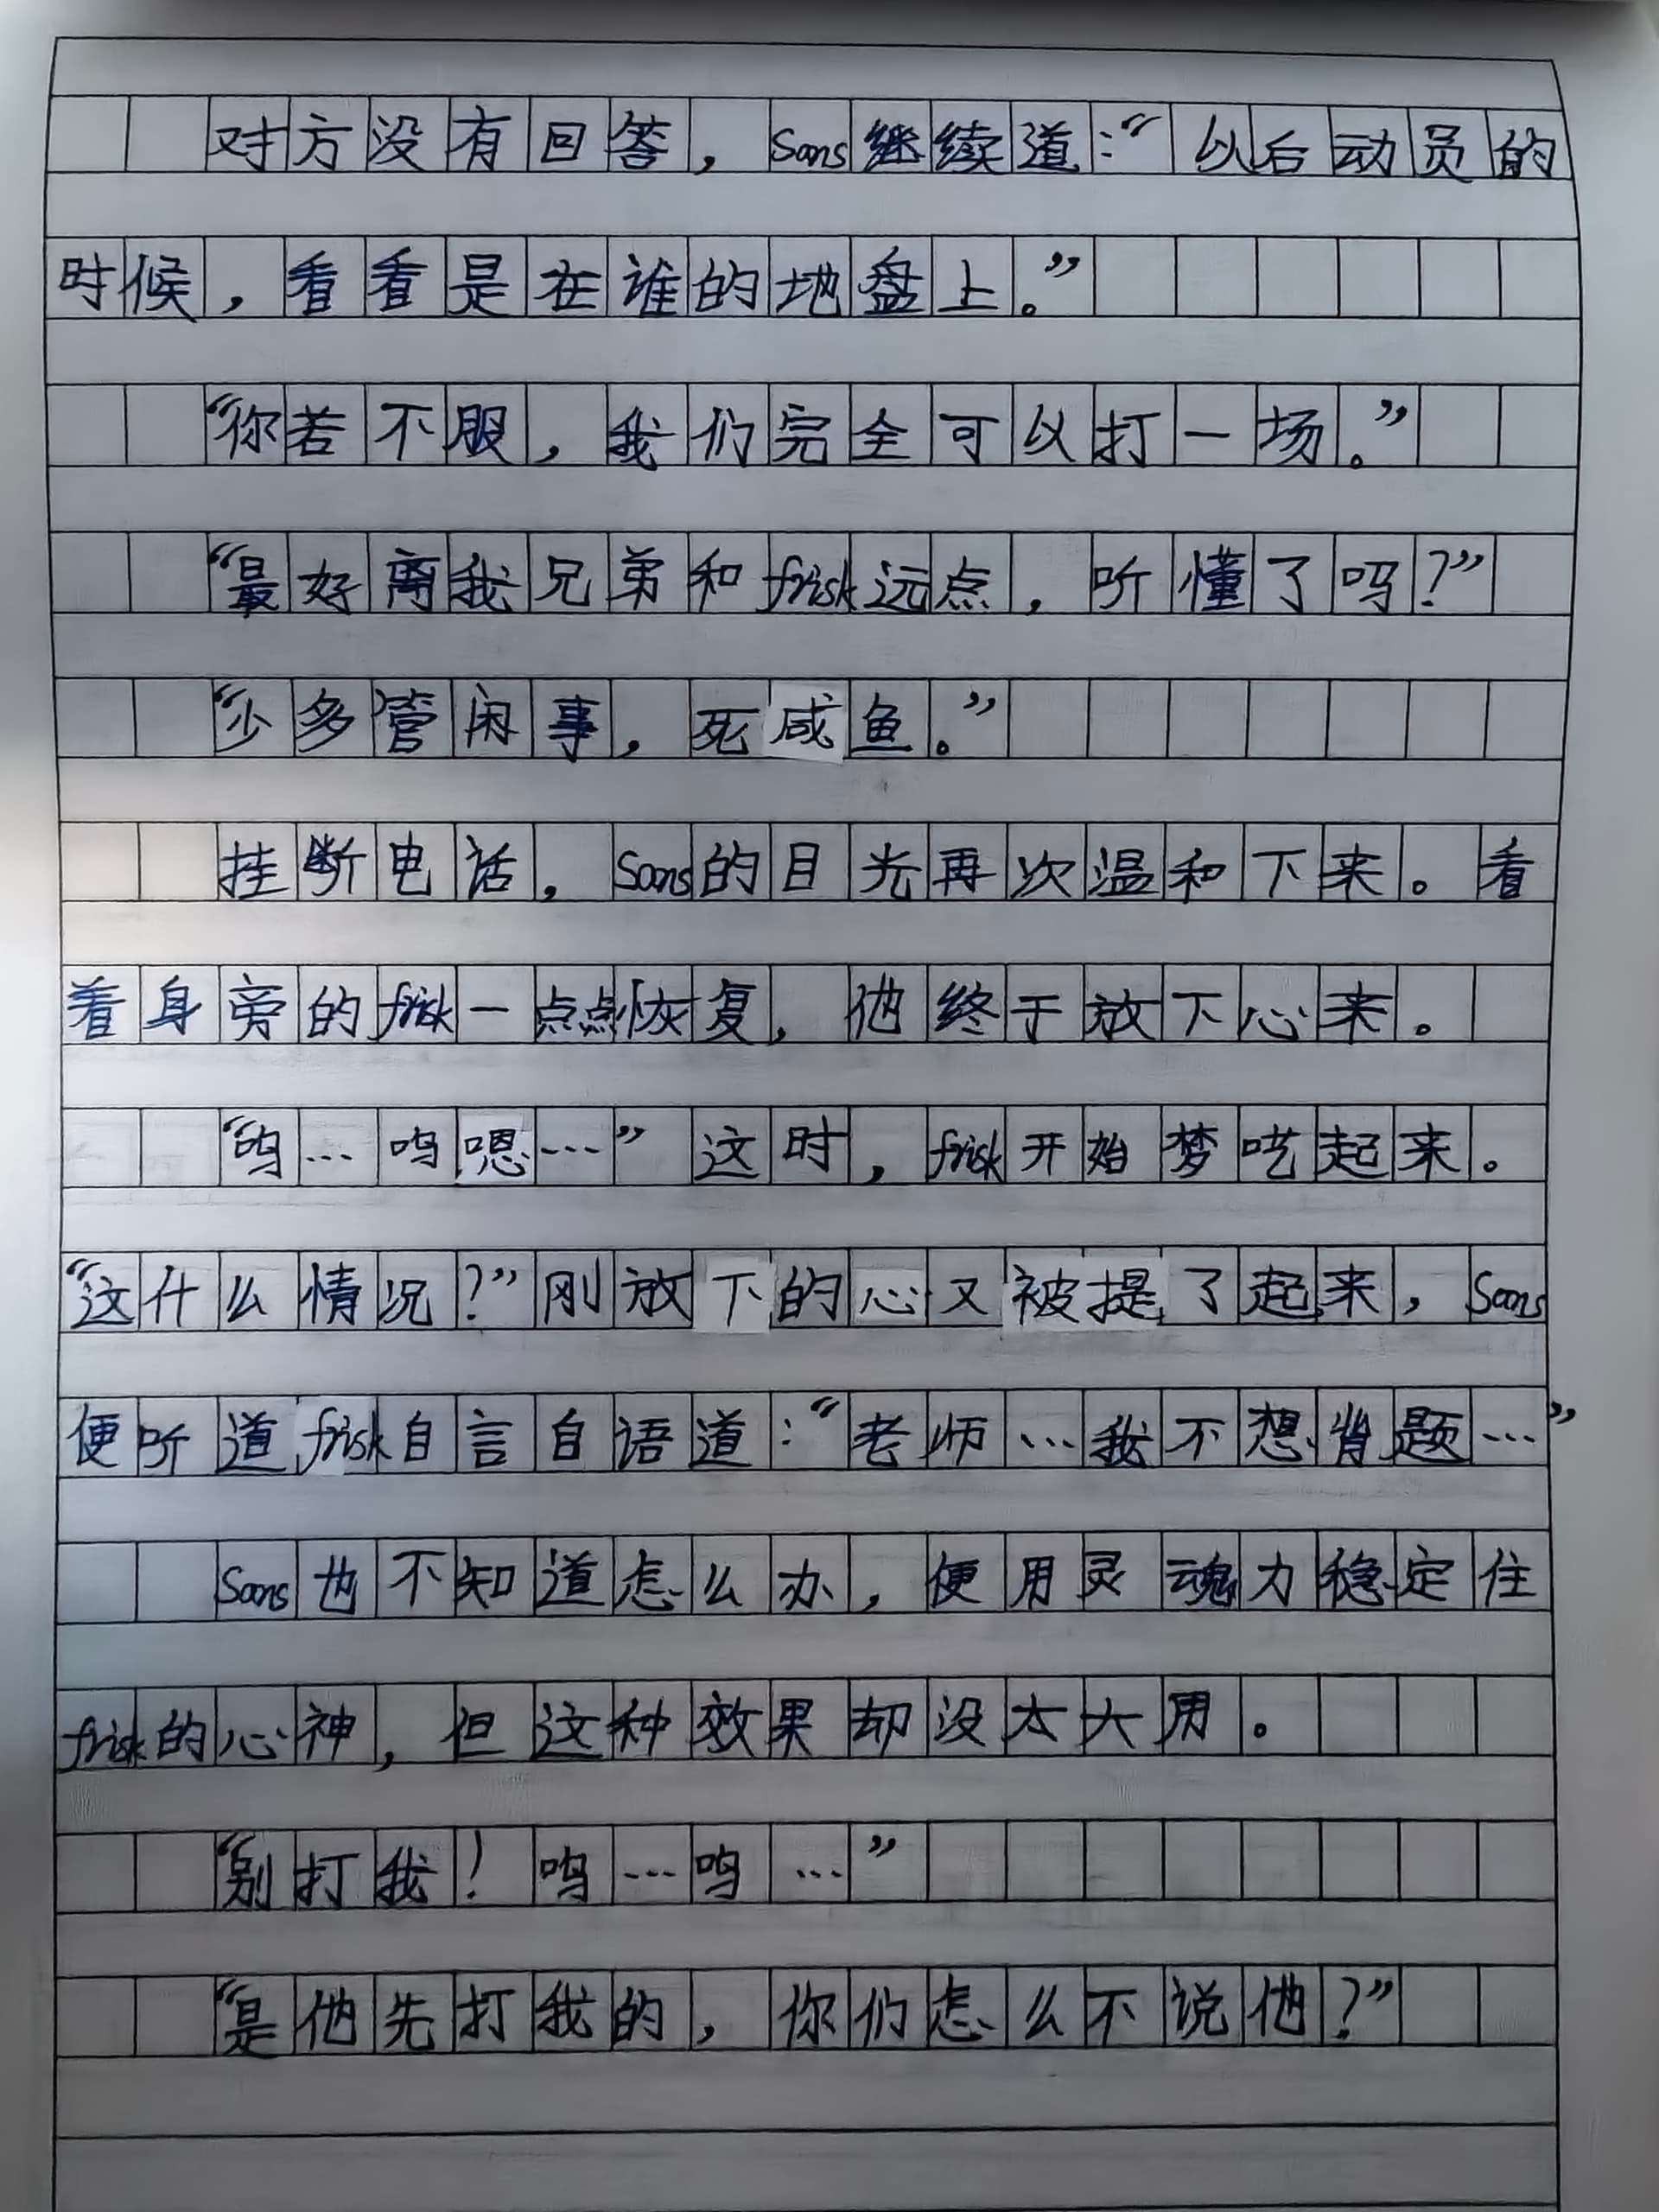 对方没有回答，Sans继续道：“以后动员的
时候，看看是在谁的地盘上。”
“你若不服，我们完全可以打一场。”
“最好离我兄弟和frisk远点，听懂了吗？”
“少多管闲事，死咸鱼。”
挂断电话，Sans的目光再次温和下来。看
着身旁的frisk一点点恢复，他终于放下心来。
“呜…呜嗯…”这时，frisk开始梦呓起来。
“这什么情况？”刚放下的心又被提了起来，Sans
便听道frisk自言自语道：“老师…我不想背题…”
Sans也不知道怎么办，便用灵魂力稳定住
frisk的心神，但这种效果却没太大用。
“别打我！呜…呜…”
“是他先打我的，你们怎么不说他？”